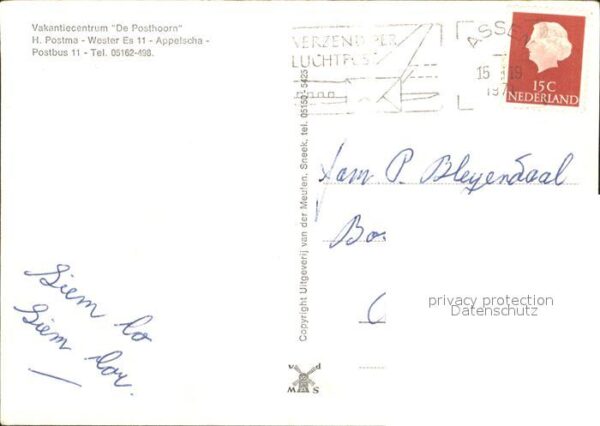 Vakantiecentrum "De Posthoorn"
H. Postma - Wester Es 11 - Appelscha -
Postbus 11 - Tel. 05162-498.
VERZEND PER
LUCHTPOST
ASSEN
15 19
197
15C
NEDERLAND
Copyright Uitgeverij van der Meulen, Sneek, tel. 05150-5425
Fam P. Bleyendaal
Bo
privacy protection
Datenschutz
Siem
Siem
v d
W M S